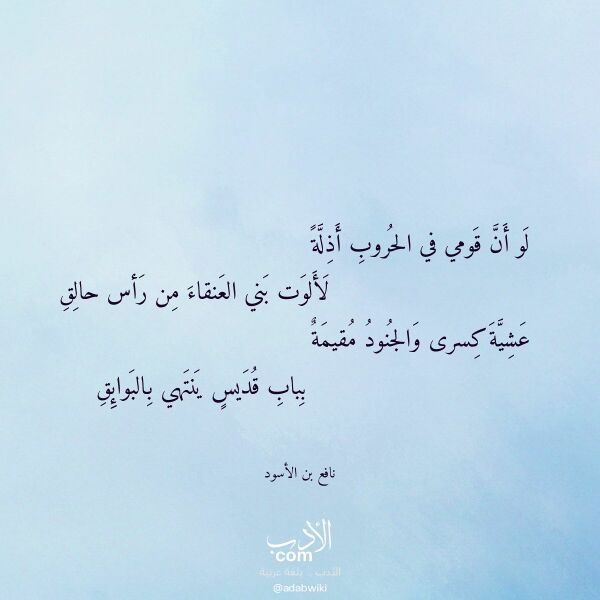 لَو أَنَّ قَومي في الحُروبِ أَذِلَّةً
لَأَلوَت بَني العَنقاءَ مِن رَأس حالِقِ
عَشِيَّةَ كِسرى وَالجُنودُ مُقيمَةٌ
بِبابِ قُدَيسٍ يَنتَهي بِالبَوايِقِ
نافع بن الأسود
الأدب
com
الأدب .. بلغة عربية
@adabwiki